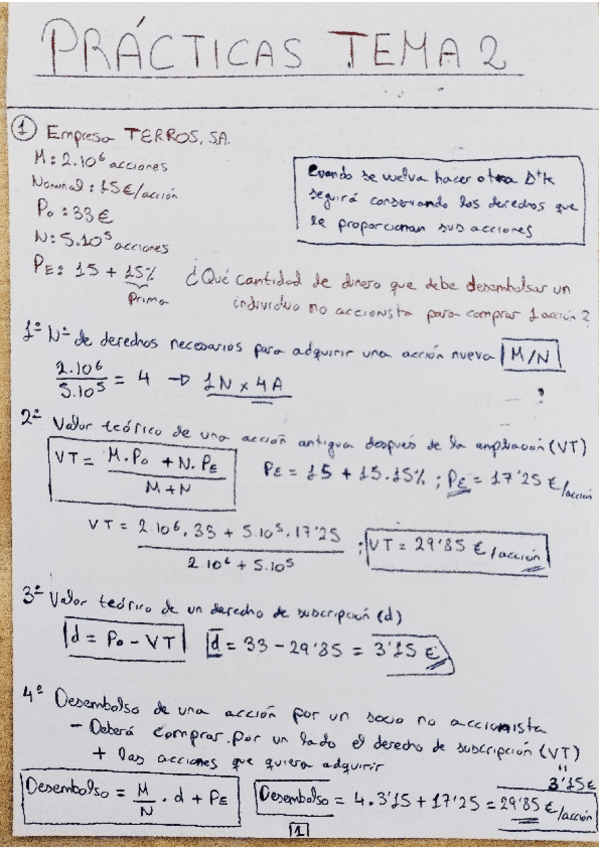 PRÁCTICAS TEMA 2
① Empresa TERROS, S.A.
M: 2.10⁶ acciones
Nominal: 15€/acción
Po: 33€
N: 5.10⁵ acciones
PE: 15 + 15%
Prima
Cuando se vuelva hacer otra Δ⁺k
seguirá conservando los derechos que
le proporcionan sus acciones
¿Qué cantidad de dinero que debe desembolsar un
individuo no accionista para comprar 1 acción?
1º Nº de derechos necesarios para adquirir una acción nueva M/N
2.10⁶ / 5.10⁵ = 4 → 1N x 4A
?
2º Valor teórico de una acción antigua después de la ampliación (VT)
VT = M.Po + N.PE / M+N
PE = 15 + 15.15% ; PE = 17'25 €/acción
VT = 2.10⁶.33 + 5.10⁵.17'25 / 2.10⁶ + 5.10⁵ ; VT = 29'85 €/acción
3º Valor teórico de un derecho de suscripción (d)
d = Po - VT d = 33 - 29'85 = 3'15 €
4º Desembolso de una acción por un socio no accionista
- Deberá comprar por un lado el derecho de suscripción (VT)
+ las acciones que quiera adquirir
"
3'15€
Desembolso = M/N . d + PE
Desembolso = 4.3'15 + 17'25 = 29'85 €/acción
1